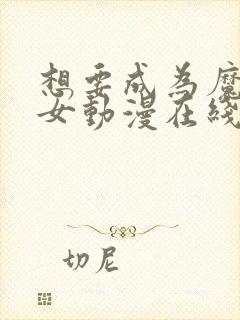 想要成为魔
女動漫在綫
切尼